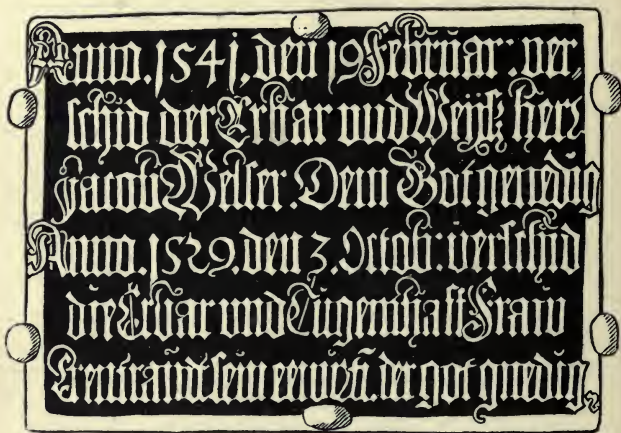 Anno. 1541. den 19 Februar: ver⸗
schid der Erbar vnnd Weyß herr
Jacob Welser. Dem Got genedig
Anno. 1529. den 3. Octob: verschid
die Erbar vnnd Tugenthafft Fraw
sein der got gnedig